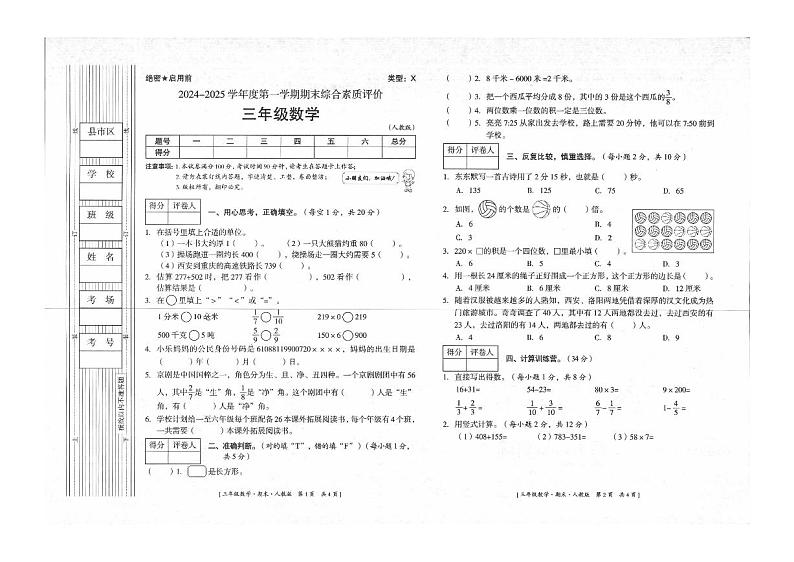 绝密★启用前 类型：X
2024-2025 学年度第一学期期末综合素质评价
三年级数学
（人教版）
题号 一 二 三 四 五 六 总分
得分
注意事项：1. 本试卷满分100分，考试时间90分钟，请考生在答题卡上作答；
2. 请勿在装订线内答题，字迹清楚、工整，卷面整洁；
3. 版权所有，翻印必究。
小朋友们，加油哦！
县市区
学 校
班 级
姓 名
考 场
考 号
得分 评卷人
一、用心思考，正确填空。（每空 1 分，共 20 分）
1. 在括号里填上合适的单位。
（1）一本书大约厚 1（ ）。 （2）一只大熊猫约重 80（ ）。
（3）操场跑道一圈约长 400（ ），绕操场走一圈大约需要 5（ ）。
（4）西安到重庆的高速铁路长 739（ ）。
2. 估算 277+502 时，把 277 看作（ ），502 看作（ ），
估算结果是（ ）。
3. 在○里填上“>”“<”或“=”。
1 分米○10 毫米 1/7○1/10 219×0○219
500 千克○5 吨 5/9○2/9 150×6○900
4. 小乐妈妈的公民身份号码是 61088119900720××××，妈妈的出生日是
（ ）年（ ）月（ ）日。
5. 京剧是中国国粹之一，角色分为生、旦、净、丑四种。一个京剧剧团中有 56
人，其中2/7是“生”角，1/8是“净”角。这个剧团中有（ ）人是“生”
角，有（ ）人是“净”角。
6. 学校计划给一至六年级每个班配备 26 本课外拓展阅读书，每个年级有 4 个班，
一共需要（ ）本课外拓展阅读书。
得分 评卷人
二、准确判断。（对的填“T”，错的填“F”）（每小题 1 分，
共 5 分）
（ ）1. 是长方形。
［三年级数学·期末·人教版 第 1 页 共 4 页］
（ ）2. 8 千米－6000 米=2 千米。
（ ）3. 把一个西瓜平均分成 8 份，其中的 3 份是这个西瓜的3/8。
（ ）4. 两位数乘一位数的积一定是三位数。
（ ）5. 亮亮 7:25 从家出发去学校，路上需要 20 分钟，他可以在 7:50 前到
学校。
得分 评卷人
三、反复比较，慎重选择。（每小题 2 分，共 10 分）
1. 东东默写一首古诗用了 2 分 15 秒，也就是（ ）秒。
A. 135 B. 125 C. 75 D. 65
2. 如图，的个数是的（ ）倍。
A. 6 B. 4
C. 3 D. 2
3. 220×□的积是一个四位数，□里最小填（ ）。
A. 6 B. 5 C. 4 D. 3
4. 用一根长 24 厘米的绳子正好围成一个正方形，这个正方形的边长是（ ）。
A. 4 厘米 B. 6 厘米 C. 8 厘米 D. 12 厘米
5. 随着汉服被越来越多的人熟知，西安、洛阳两地凭借着深厚的汉文化成为热
门旅游城市。奇奇调查了 40 人，其中有 12 人两地都没去过，去过西安的有
23 人，去过洛阳的有 14 人，两地都去过的有（ ）人。
A. 4 B. 6 C. 8 D. 9
得分 评卷人
四、计算训练营。（34 分）
1. 直接写出得数。（每小题 1 分，共 8 分）
16+31= 54-23= 80×3= 9×200=
1/3+2/3= 1/10+3/10= 6/7-1/7= 1-4/5=
2. 用竖式计算。（每小题 2 分，共 12 分）
（1）408+155= （2）783-351= （3）58×7=
［三年级数学·期末·人教版 第 2 页 共 4 页］